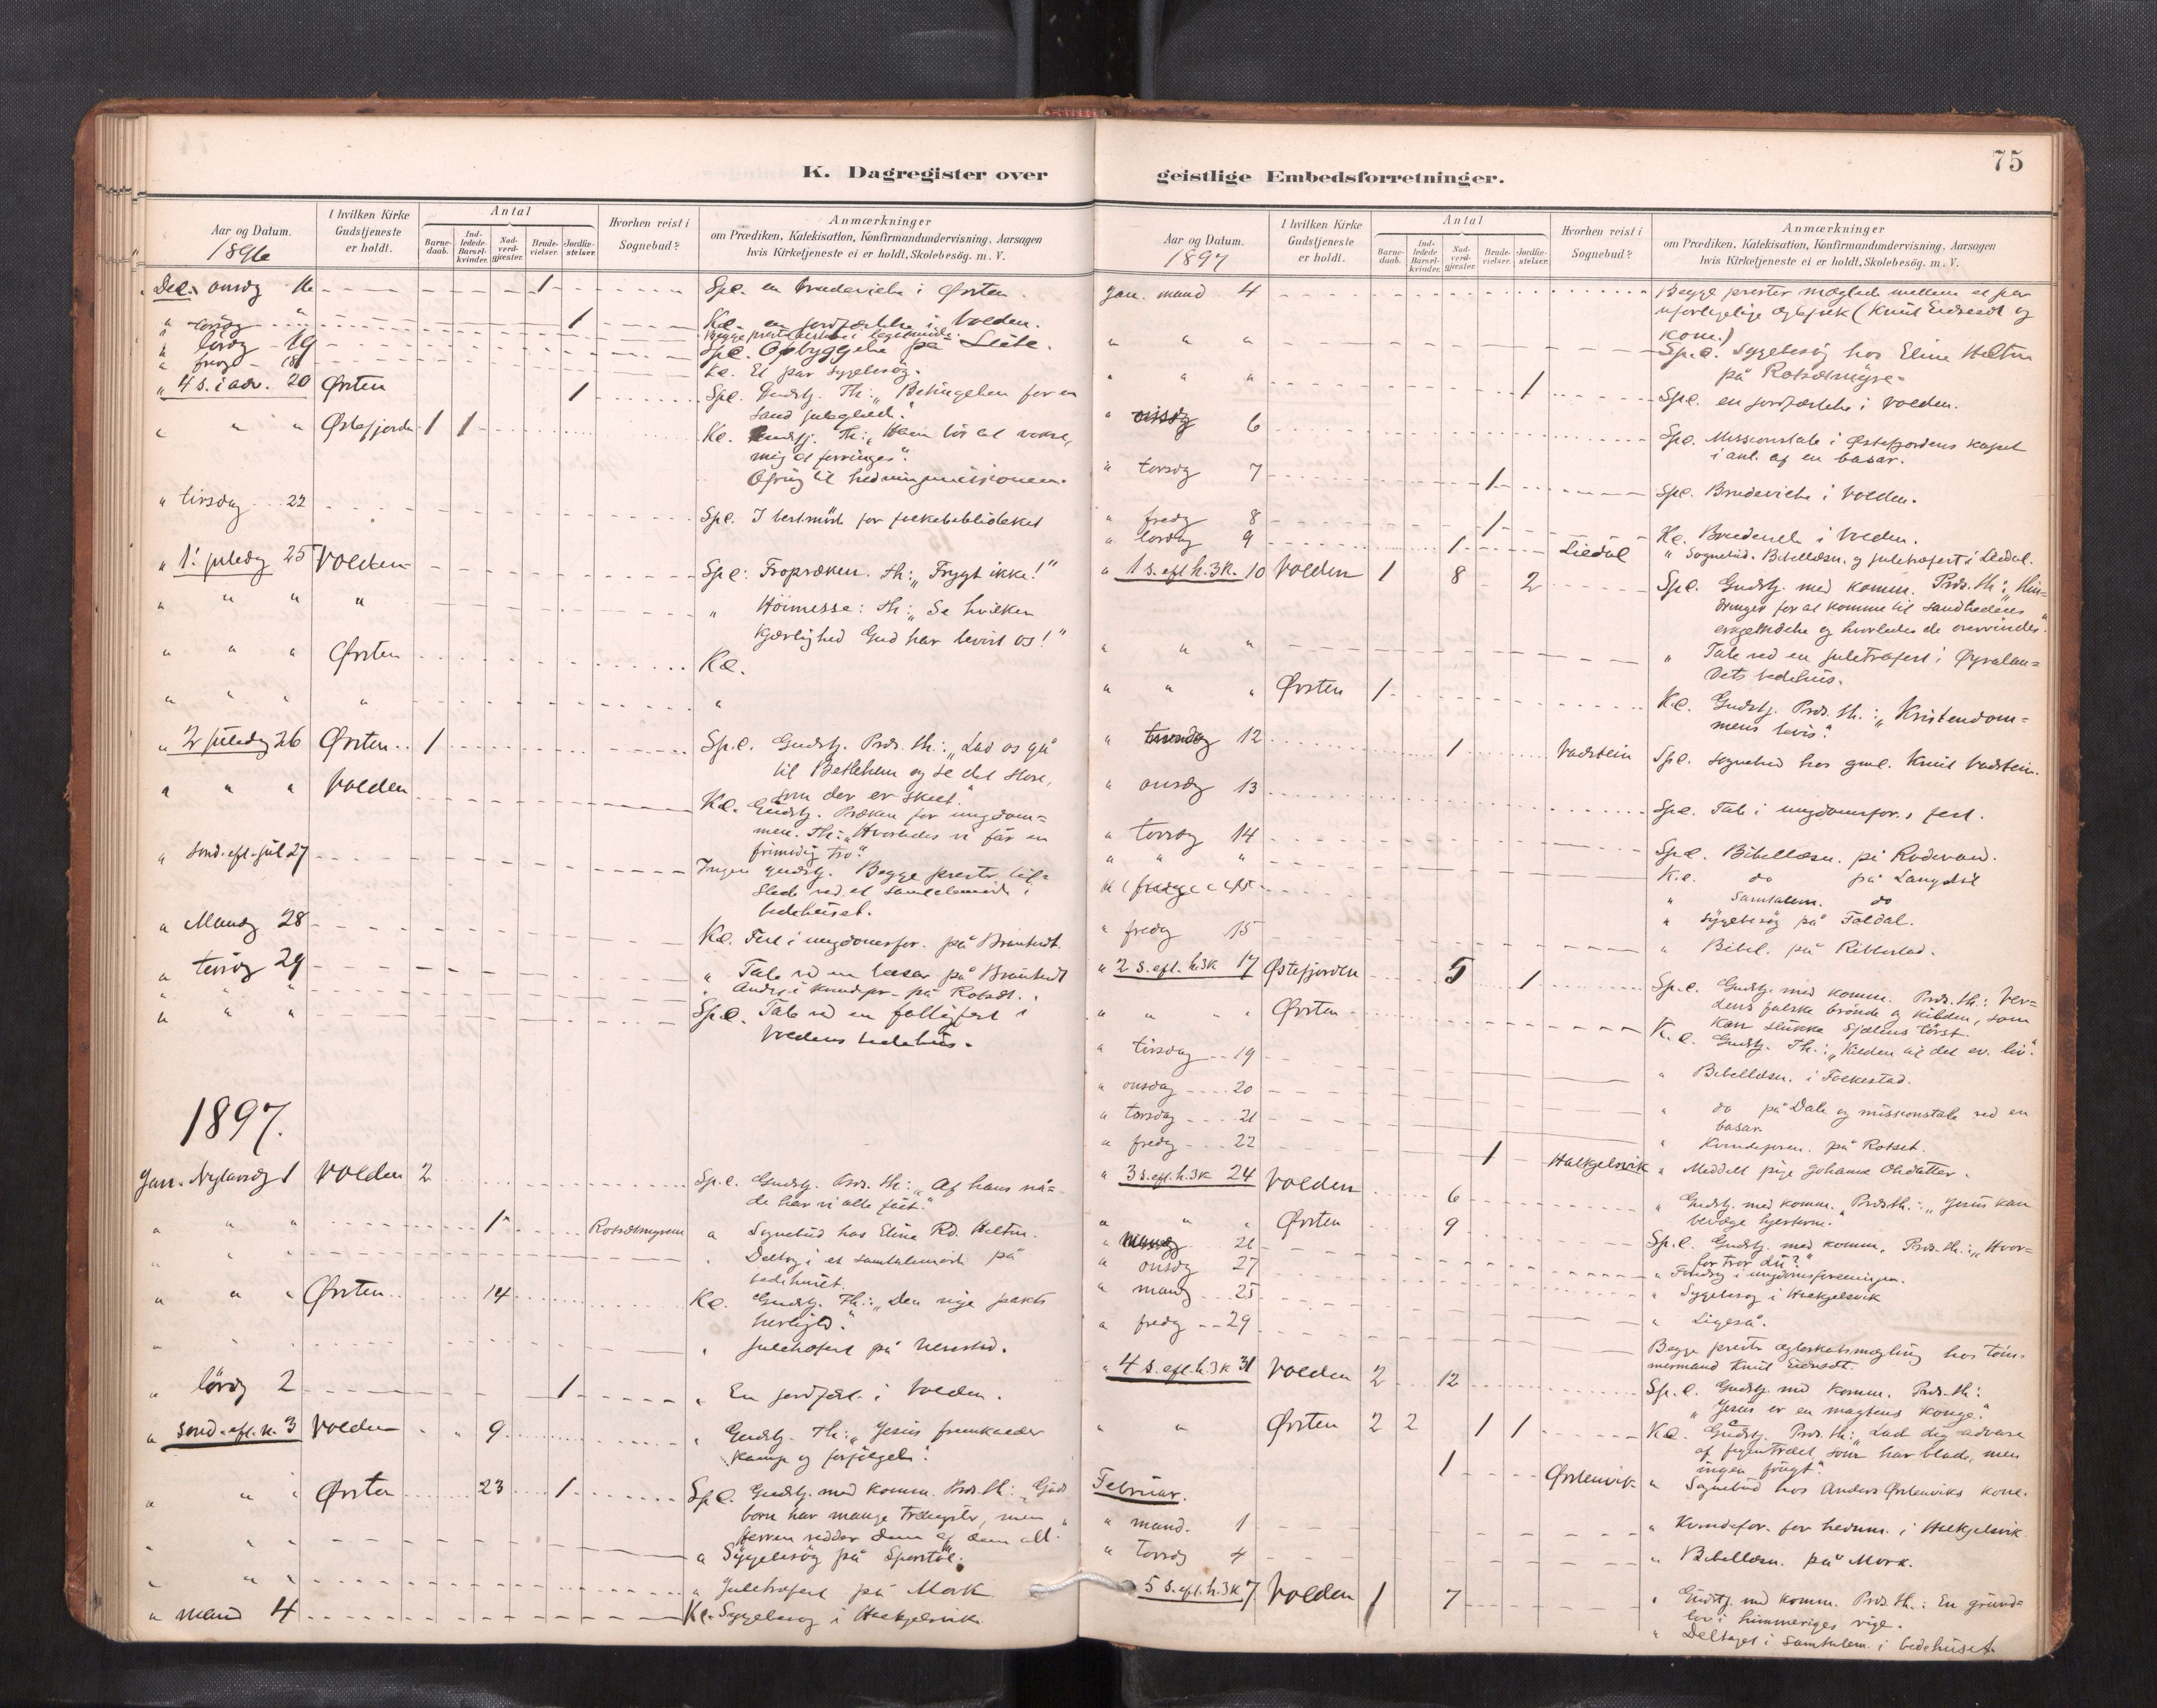 75
K. Dagregister over
Aar og Datum.
1896
I hvilken Kirke Gudstjeneste er holdt.
Antal
Barne-daab.
Ind-ledede Barsel-kvinder.
Nad-verd-gjæster.
Brude-vielser.
Jordfæ-stelser.
Hvorhen reist i Sognebud?
Anmærkninger
om Prædiken, Katekisation, Konfirmandundervisning, Aarsagen
hvis Kirketjeneste ei er holdt, Skolebesög. m. V.
Dec. onsdg 16 1 Spl. en brudevielse i Ørsten.
" " 1 Kl. en jordfæstelse i Volden.
" lördg 19 Spl. Opbyggelse på Liete.
" fredg 18 Kl. Et par sygebesög.
" 4 s. i adv. 20 Ørsten 1 Spl. Gudstj. Th: „Betingelsen for en
sand juleglæde."
" " " Østefjorden 1 1 Kl. Gudstj. Th: „Ham bör at vokse,
mig at forringes".
Ofring til hedningmissionen.
" tirsdag 22 Spl. I best.möde for folkebiblioteket
" 1. juledg 25 Volden Spl: Fropræken. Th: „Frygt ikke!"
" " " " " Höimesse: Th: „Se hvilken
kjærlighed Gud har bevist os!"
" " " Ørsten Kl.
" " " " "
" 2 juledg 26 Ørsten 1 Spl. Gudstj. Præd. th: „Lad os gå
til Betlehem og se det store,
som der er skeet."
" " " Volden Kl. Gudstj. Præken for ungdom=
men. Th: „Hvorledes vi får en
frimodig tro".
" Sönd. eft. jul 27 Ingen gudstj. Begge prester til=
stede ved et samtalemöde i
bedehuset.
" Mandg 28 Kl. Fest i ungdomsfor. på
" tirsdg 29 " Tale ved en basar på
" " "
" " " Spl. Tale ved en fattigfest i
Voldens bedehus.
1897.
Jan. Nytårsdg 1 Volden 2 Spl. Gudstj. Præd. th: „Af hans nå=
de har vi alle fået."
" " " 1 Rotsætmyren " Sognebud hos Eline Rd. Heltne.
" " " " Deltog i et samtalemöde på
bedehuset.
" " " Ørsten 14 Kl. Gudstj. Th: „Den nye pakts
herlighed".
" Juletræfest på
" lördg 2 1 " En jordfæst. i Volden.
" sönd. eft. n. 3 Volden 9 " Gudstj. Th: „Jesus fremkalder
kamp og forfölgelse".
" " " Ørsten 23 1 Spl. Gudstj. med komm. Præd. th: „Guds
börn har mange trængsler, men
herren redder dem af dem all."
" " " " Sygebesög på
" " " " Juletræfest på Mork
" mand 4 Kl. Sygebesög i Halkjelsvik
geistlige Embedsforretninger.
Aar og Datum.
1897
I hvilken Kirke Gudstjeneste er holdt.
Antal
Barne-daab.
Ind-ledede Barsel-kvinder.
Nad-verd-gjæster.
Brude-vielser.
Jordfæ-stelser.
Hvorhen reist i Sognebud?
Anmærkninger
om Prædiken, Katekisation, Konfirmandundervisning, Aarsagen
hvis Kirketjeneste ei er holdt, Skolebesög. m. V.
Jan. mand 4 Begge prester mæglede mellem et par
uforligelige ægtefolk (Knut Eidsesdt og
kone.)
" " " Spl. Sygebesög hos Eline Heltne
på Rotsætmyre.
" " " 1 Spl. en jordfæstelse i Volden.
" 6 Spl. Missionstale i Østefjordens kapel
i anl. af en basar.
" torsdg 7 1 Spl. Brudevielse i Volden.
" fredg 8 1 Kl. Brudevielse i Volden.
" lördag 9 1 Liedal " Sognebud. Bibellæsn. og juletræfest i Liedal.
" 1 s. eft. h. 3 K. 10 Volden 1 8 2 Spl. Gudstj. med komm. Præd. th: „Hin=
dringer for at komme til sandhedens
erkjendelse og hvorledes de overvindes".
" " " " Tale ved en juletræfest i Øyralan=
dets bedehus.
" " " Ørsten 1 Kl. Gudstj. Præd. th.: „Kristendom=
mens bevis".
" 12 1 Vadstein Spl. sognebud hos gml. Knut Vadstein.
" onsdg 13 Spl. Tale i ungdomsfor.s fest.
" torsdg 14 Spl. Bibellæsn. på Rödevand.
" " " Kl. do på Langdal
" Samtalem. do
" sygebesög på Foldal.
" fredg 15 " Bibel. på Ribbestad.
" 2 s. eft. h. 3K 17 Østefjorden 5 1 Spl. Gudstj. med komm. Præd. th.: Ver=
dens falske brönde og kilden, som
kan slukke sjælens törst.
" " " Ørsten Kl. Gudstj. Th.: „Kilden til det ev. liv".
" tirsdag 19 " Bibellæsn. i Folkestad.
" onsdag 20 " do på Dale og missionstale ved en
basar.
" torsdag 21 " Kvindeforen. på Rotset.
" fredg 22 1 Halkjelsvik " Meddelt pige Johanne Olsdatter.
" 3 s. eft. h. 3K 24 Volden 6 " Gudstj. med komm. Præd. th.: „Jesus kan
bevæge hjerterne.
" " " Ørsten 9 Spl. Gudstj. med komm. Præd. th.: „Hvor=
for tror du?"
" 26 " Foredrag i ungdomsforeningen.
" onsdg 27 " Sygebesög i Halkjelsvik
" mandg 25 " Ligeså.
" fredg 29 Begge prester ægteskabsmægling hos töm=
mermand Knut Eidesdt.
" 4 s. eft. h. 3K 31 Volden 2 12 Spl. Gudstj. med komm. Præd. th:
„Jesus er en magtens konge."
" " Ørsten 2 2 1 1 Kl. Gudstj. Præd. th: „Lad dig advare
af figentræet som har blade, men
ingen frugt".
1 Ørstenvik " Sognebud hos Anders Ørstenviks kone.
Februar.
" mand. 1 " Kvindefor. for hednm. i Halkjelsvik.
" torsdg 4 " Bibellæsn. på Mork.
5 s. eft. h. 3K 7 Volden 1 7 " Gudstj. med komm. Præd. th.: En grund=
lov i himmeriges rige.
" Deltaget i samtalem. i bedehuset